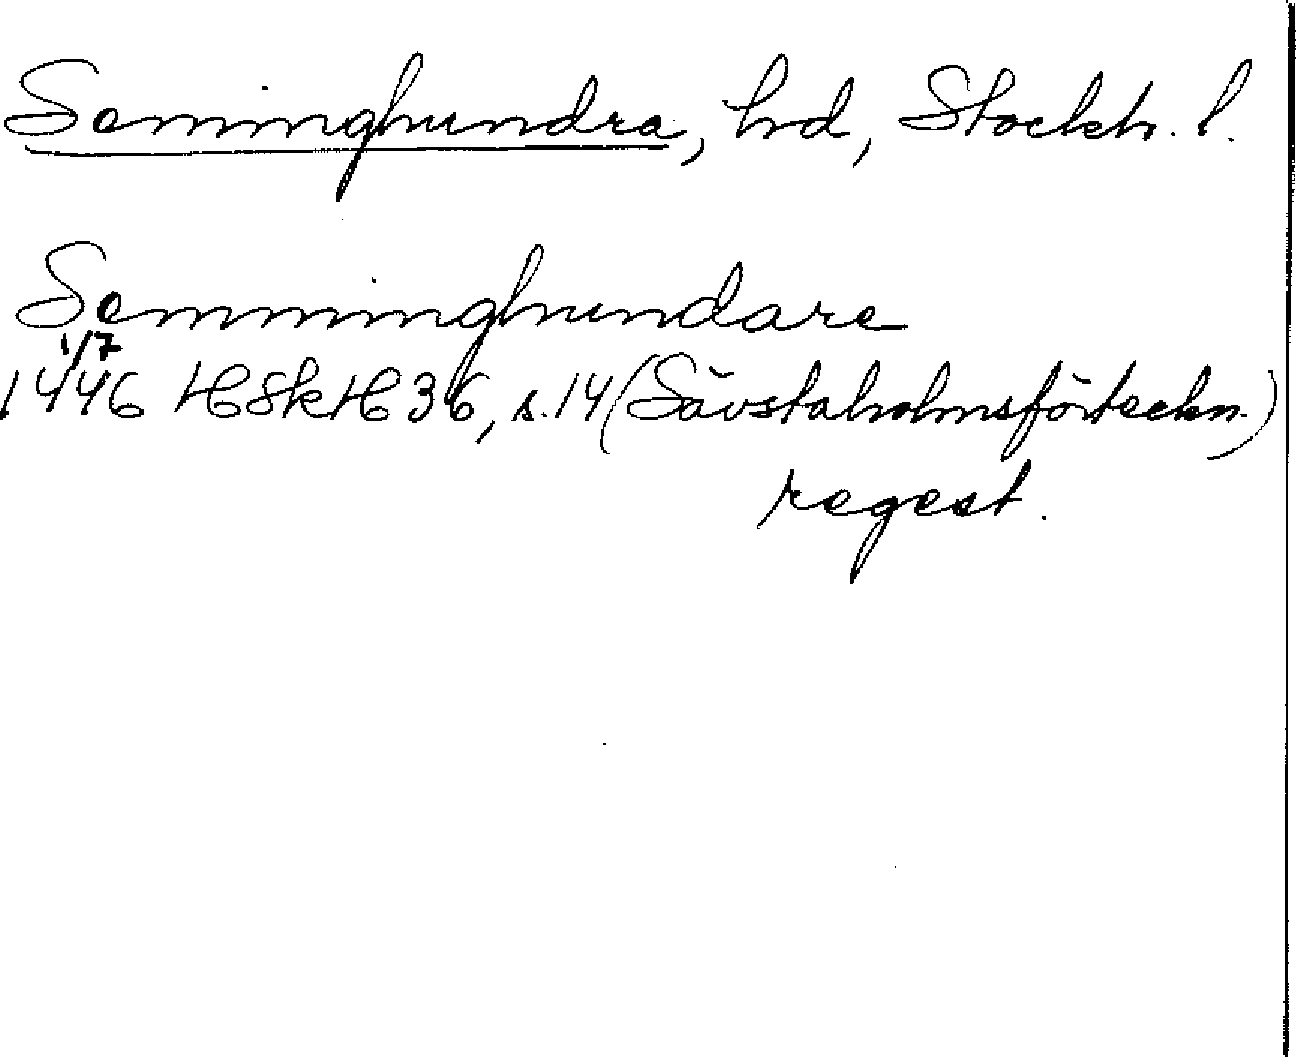 Seminghundra, hd, Stockh. l.
Semminghundare
1/7
1446 HSkH 36, s. 14 (Sävstaholmsförteckn.)
regest.